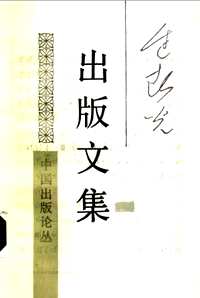 边春光
出版文集
中国出版论丛